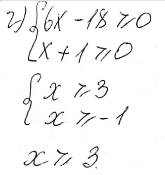 г) { 6x - 18 ⩾ 0
x + 1 ⩾ 0
{ x ⩾ 3
x ⩾ -1
x ⩾ 3